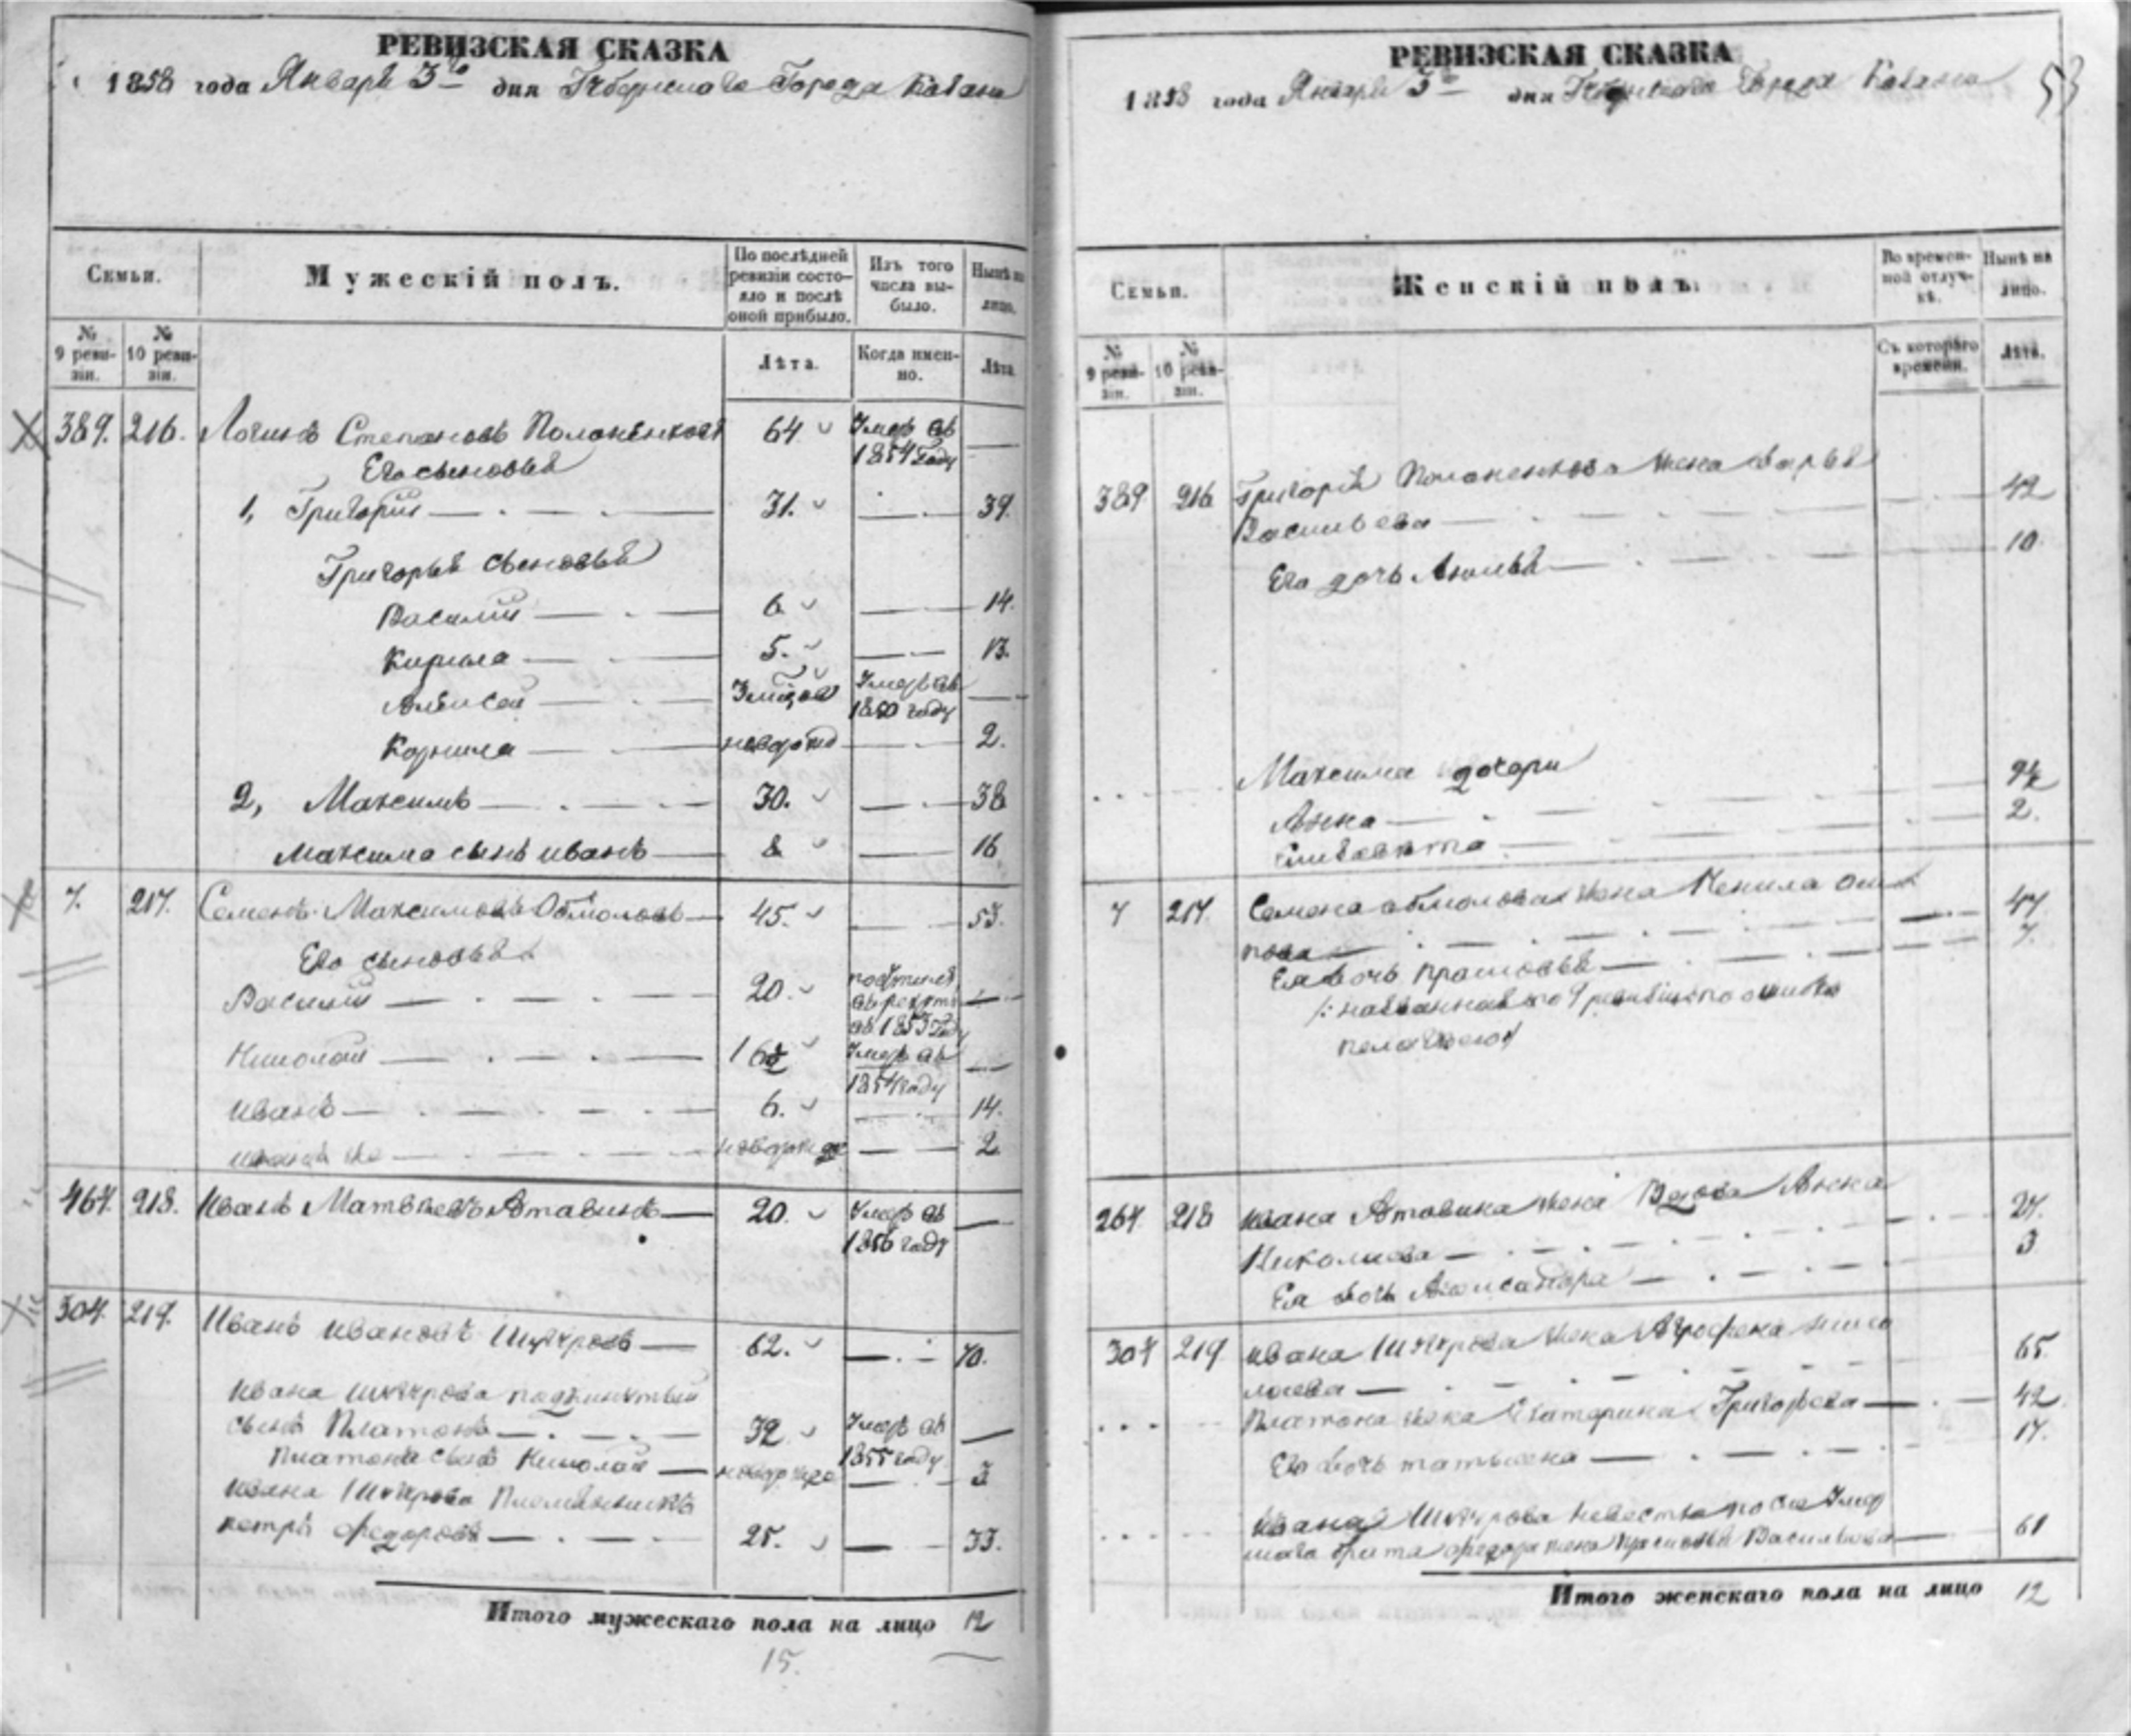 РЕВИЗСКАЯ СКАЗКА
1858 года Января 3го дня Губернскаго Города Казани
Семьи.
Мужескій полъ.
По послѣдней ревизіи состояло и послѣ оной прибыло.
Изъ того числа выбыло.
Нынѣ на лицо.
№ 9 ревизіи.
№ 10 ревизіи.
Лѣта.
Когда именно.
Лѣта.
389. 216. Логинъ Степановъ 64 Умеръ въ 1854 году —
Его сыновья
1, Григорій 31. — 39.
Григорья сыновья
Василій 6 — 14.
Кирила 5. — 13.
Алексей Умеръ въ 1850 году —
Корнила новорожд — 2.
2, Максимъ 30. — 38
Максима сынъ Иванъ 8 — 16
7. 217. Семенъ Максимовъ 45. — 53.
Его сыновья
Василій 20. въ рекруты въ 1853 году —
Николай 16 Умеръ въ 1854 году —
Иванъ 6. — 14.
новорожде — 2
467. 218. Иванъ Матвѣевъ 20. Умеръ въ 1856 году —
304. 219. Иванъ Ивановъ 62. — 70.
Ивана
сынъ Платонъ 32 Умеръ въ 1855 году —
Платона сынъ Николай новорожде — 3
Ивана Племянникъ
Петръ Федоровъ 25. — 33.
Итого мужескаго пола на лицо 12
15.
РЕВИЗСКАЯ СКАЗКА
1858 года Января 3го дня Губернскаго Города Казани
53
Семьи.
Женскій полъ.
Во временной отлучкѣ.
Нынѣ на лицо.
№ 9 ревизіи.
№ 10 ревизіи.
Съ котораго времени.
Лѣта.
389 216 Григорія жена Дарья
Васильева 42
Его дочь 10
Максима дочери
Анна
Елизавета 2.
7 217. Семена жена
47.
Ея дочь Прасковья 7.
по 9 ревизіи по ошибке
Пелагѣею
267. 218 Ивана жена Вдова Анна
Николаева 27.
Ея дочь Александра 3
304 219 Ивана жена Аграфена
65.
Платона жена Екатерина Григорьева 42.
Его дочь Татьяна 17.
Ивана невестка
брата Федора жена Прасковья Васильева 61
Итого женскаго пола на лицо 12